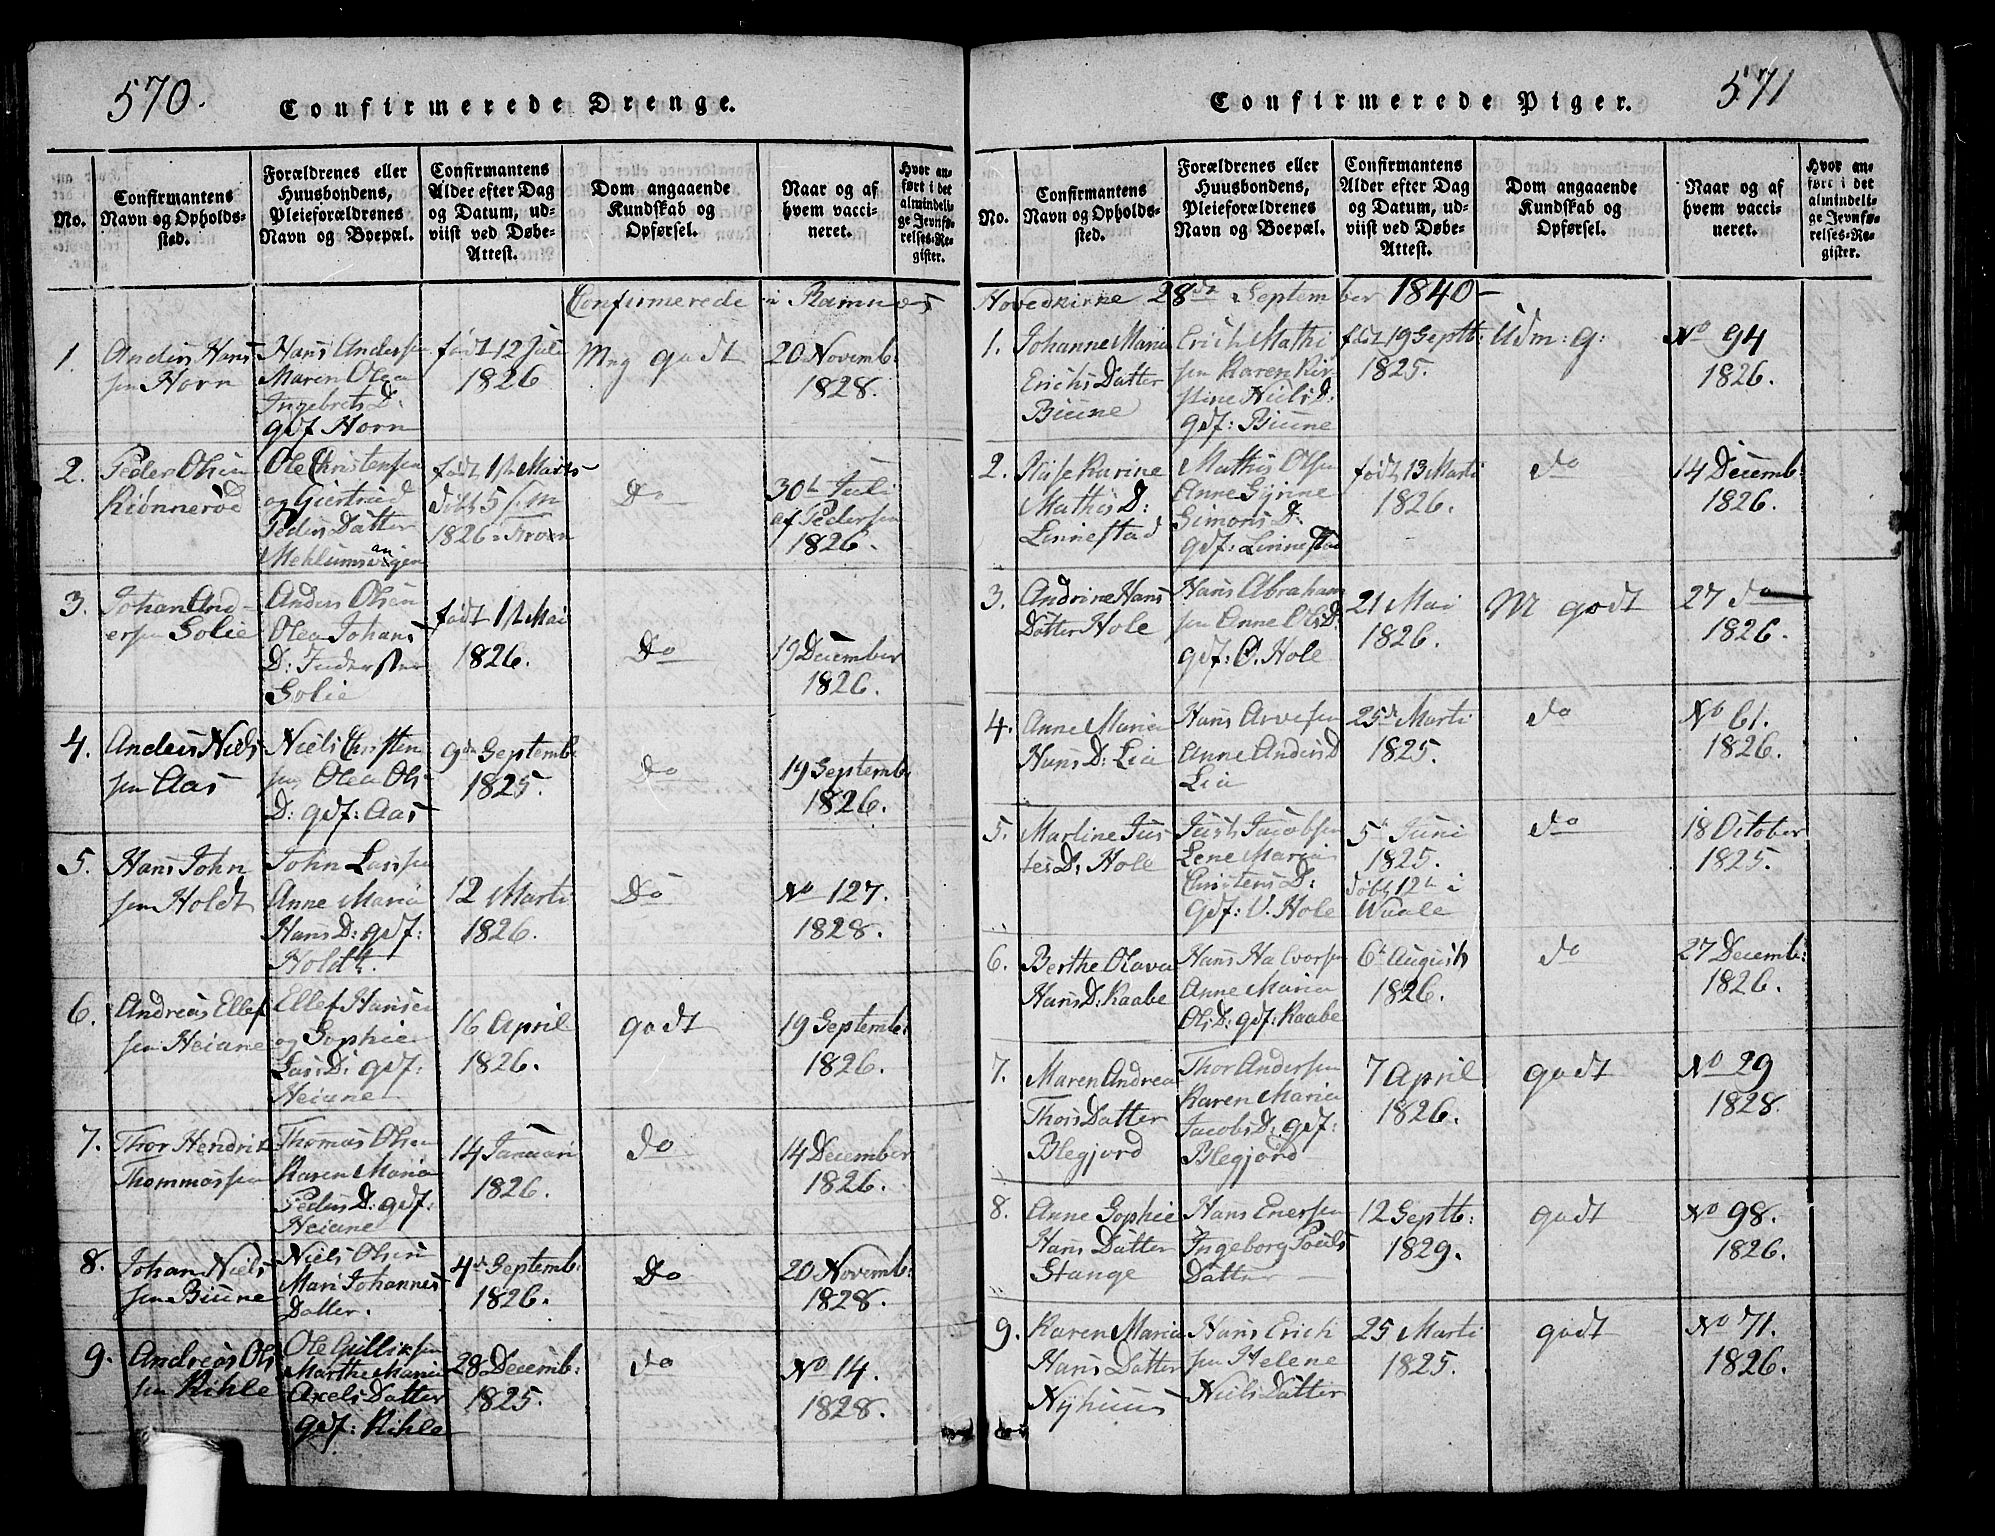 570.
Confirmerede Drenge.
No.
Confirmantens
Navn og Opholds-
sted.
Forældrenes eller
Huusbondens,
Pleieforældrenes
Navn og Boepæl.
Confirmantens
Alder efter Dag
og Datum, ud-
viist ved Døbe-
Attest.
Dom angaaende
Kundskab og
Opførsel.
Naar og af
hvem vacci-
neret.
Hvor an-
ført i det
almindeli-
ge Jevnfø-
relses-Re-
gister.
Confirmerede i Ramnes
1.
Anders Hans
sen Horn
Hans Andersen
Maren Olea
Ingebrets D:
gdf Horn
født 12 Juli
1826
Mng godt
20 Novemb:
1828.
2.
Peder Olsen
Kiønnerød
Ole Christensen
og Giertrud
Peders Datter
Mehlumsvigen
født 1st Marts
døbt 5
1826
Do
30te Juli
af Pedersen
1826.
3.
Johan And-
ersen Solie
Anders Olsen
Olea Johans
D:
Solie
født 1st Mai
1826.
Do
19 December
1826.
4.
Anders Niels
sen Aas
Niels Christen
sen, Olea Ols
D: gdf: Aas
9de Septemb:
1825.
Do
19 Septemb:
1826.
5.
Hans John
sen Holdt
John Larssen
Anne Maria
Hans D: gdf:
Holdt.
12 Marti
1826.
Do
No 127.
1828.
6.
Andreas Ellef
sen Heiane
Ellef Hansen
og Sophie
Lars D: gdf:
Heiane
16 April
1826.
godt
19 Septemb:
1826.
7.
Thor Hendrik
Thommassen
Thomas Olsen
Karen Maria
Peders D: gdf:
Heiane
14 Januari
1826.
do
14 December
1826.
8.
Johan Niels
sen Biune
Niels Olsen
Mari Johannes
Datter.
4de Septemb:
1826.
Do
20 Novemb:
1828.
9.
Andreas Ols
sen Kihle
Ole Gulliksen
Marthe Maria
Axels Datter
gdf: Kihle
28 Decemb:
1825.
do
No 14.
1828.
571
Confirmerede Piger.
No.
Confirmantens
Navn og Opholds-
sted.
Forældrenes eller
Huusbondens,
Pleieforældrenes
Navn og Boepæl.
Confirmantens
Alder efter Dag
og Datum, ud-
viist ved Døbe-
Attest.
Dom angaaende
Kundskab og
Opførsel.
Naar og af
hvem vacci-
neret.
Hvor an-
ført i det
almindeli-
ge Jevnfø-
relses-Re-
gister.
Hovedkirke 28de September 1840-
1.
Johanne Maria
Erichs Datter
Biune
Erich Mathi
sen Karen Kir-
stine Niels D:
gdf: Biune
født 19 Septb:
1825.
Udm: g:
No 94
1826.
2.
Karine
Mathis D:
Linnestad
Mathis Olsen
Anne Gÿrine
Simons D:
gdf: Linnestad
født 13 Marti
1826.
do
14 Decemb:
1826.
3.
Andrine Hans
Datter Hole
Hans Abraham
sen Anne Ols D:
gdf: Ø. Hole
21 Mai
1826.
M godt
27 do
1826.
4.
Anne Maria
Hans D: Lia
Hans Arvesen
Anne Anders D
Lia
25de Marti
1825.
do
No 61.
1826.
5.
Martine Jus
tes D: Hole
Just Jacobsen
Lene Maria
Christens D:
gdf: V. Hole
5te Juni
1825.
døbt 12te i
Waale
do
18 October
1825.
6.
Berthe Olava
Hans D: Raabe
Hans Halvorsen
Anne Maria
Ols D: gdf: Raabe
6te August
1826.
do
27 Decemb:
1826.
7.
Maren Andrea
Thors Datter
Blegjord
Thor Andersen
Karen Maria
Jacobs D: gdf:
Blegjord
7 April
1826.
godt
No 29
1828.
8.
Anne Sophie
Hans Datter
Stange
Hans Enersen
Ingeborg Pouls
Datter
12 Septb:
1829.
godt
No 98.
1826.
9.
Karen Maria
Hans Datter
Nÿhuus
Hans Erich
sen Helene
Niels Datter
25 Marti
1825.
godt
No 71.
1826.